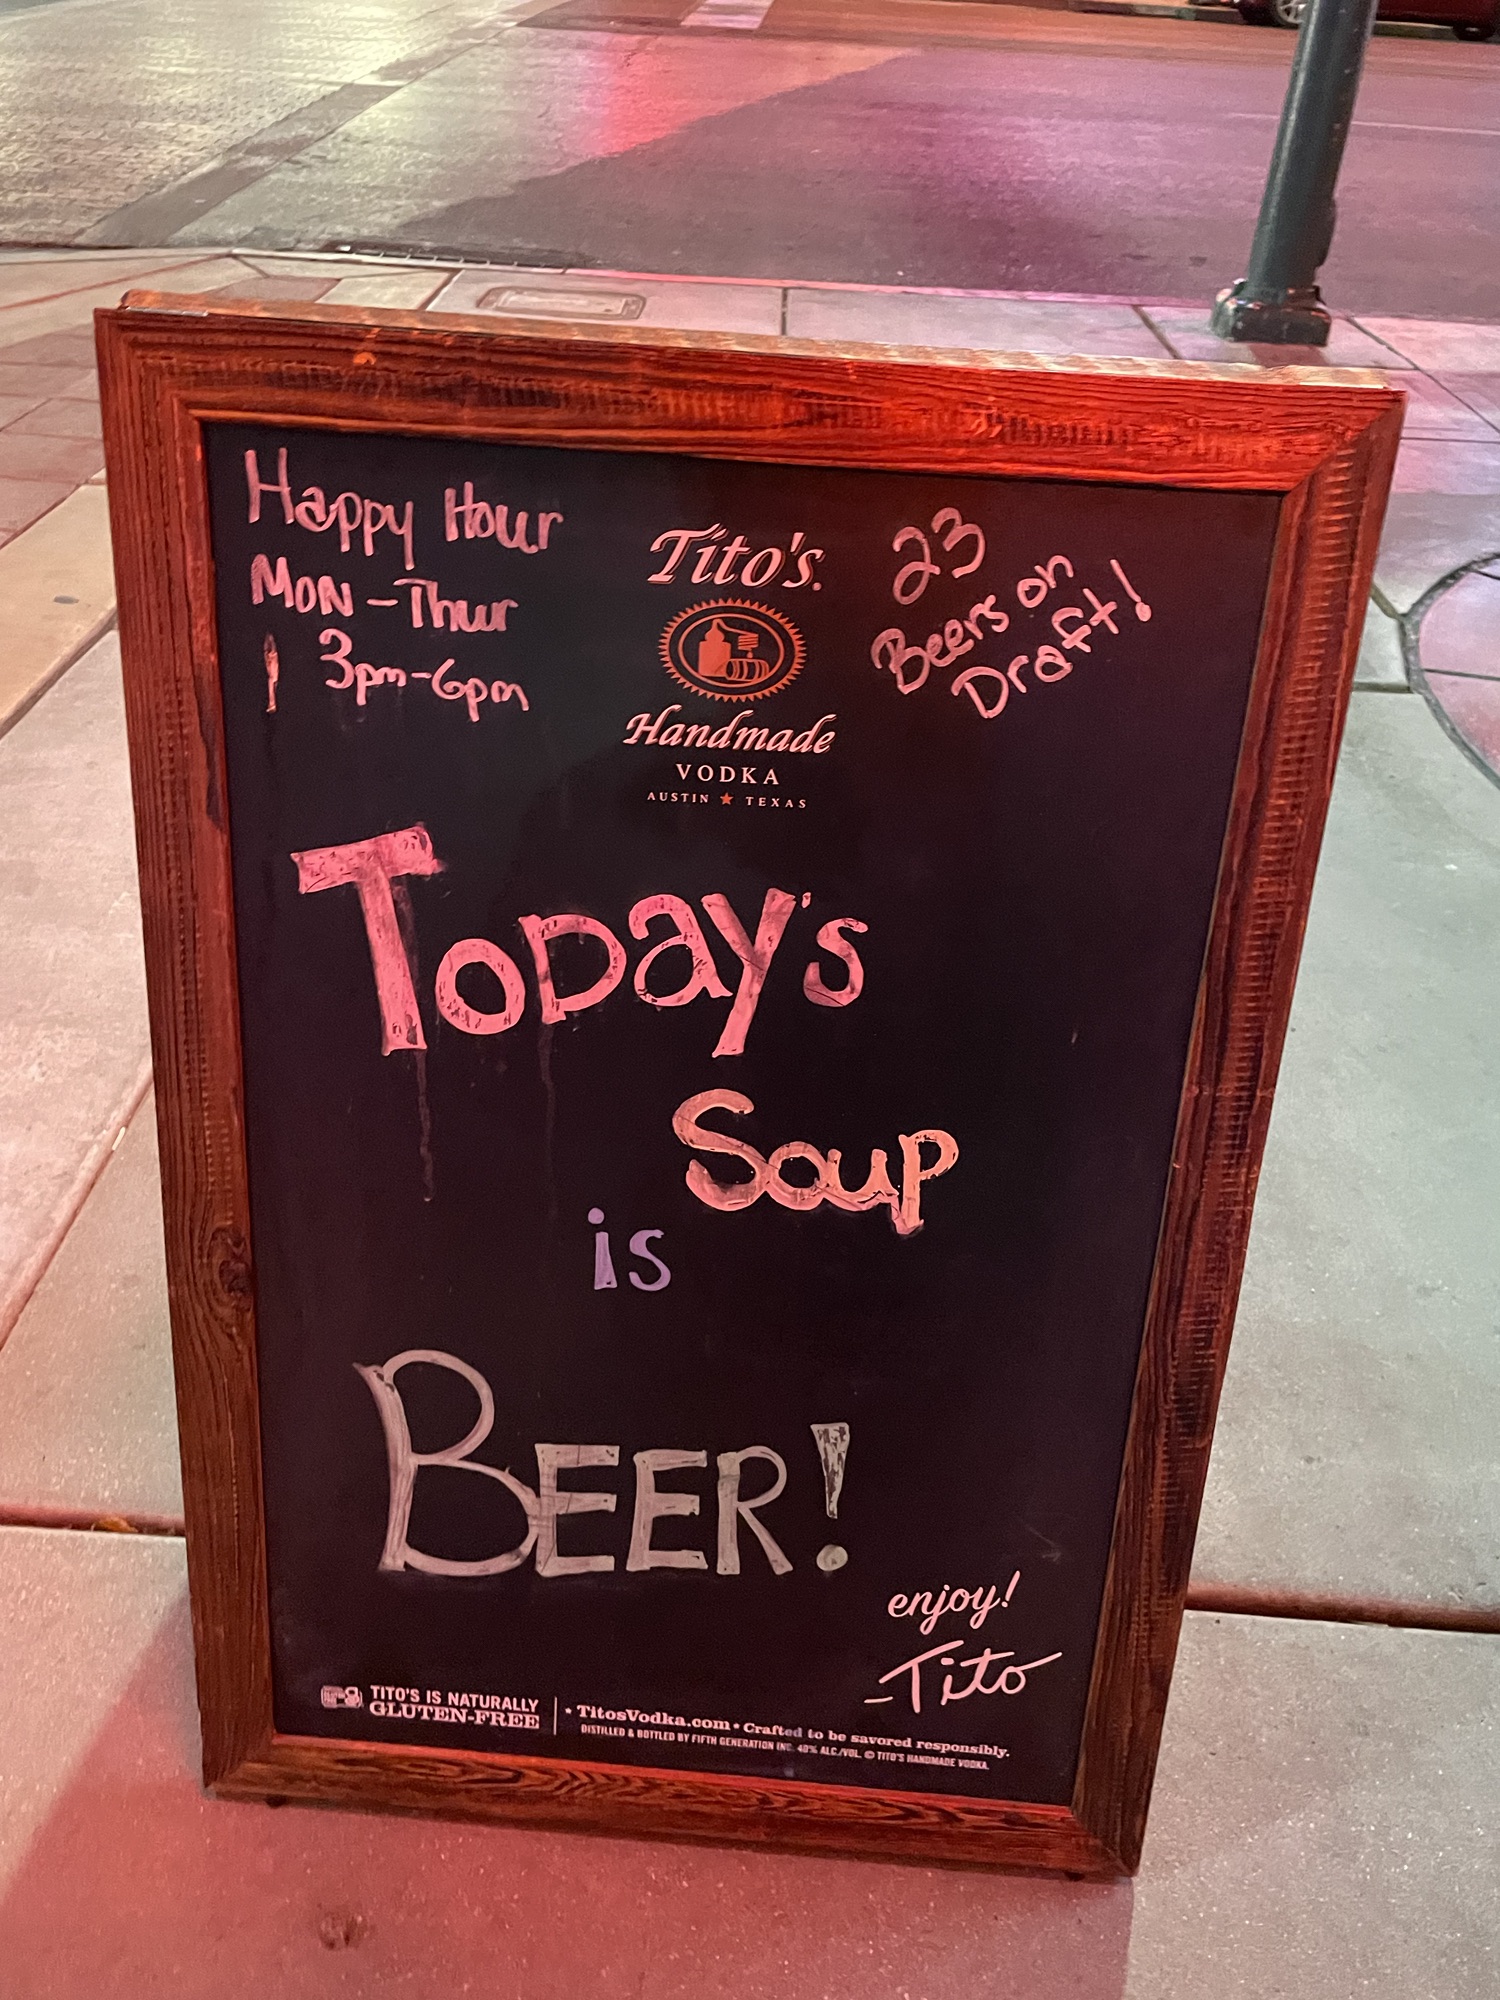 Happy Hour
MON - Thur
3pm-6pm
Tito's.
Handmade
VODKA
AUSTIN ★ TEXAS
23
Beers on
Draft!
Today's
Soup
is
BEER!
enjoy!
-Tito
TITO'S IS NATURALLY
GLUTEN-FREE
• TitosVodka.com • Crafted to be savored responsibly.
DISTILLED & BOTTLED BY FIFTH GENERATION INC. 40% ALC./VOL. © TITO'S HANDMADE VODKA.